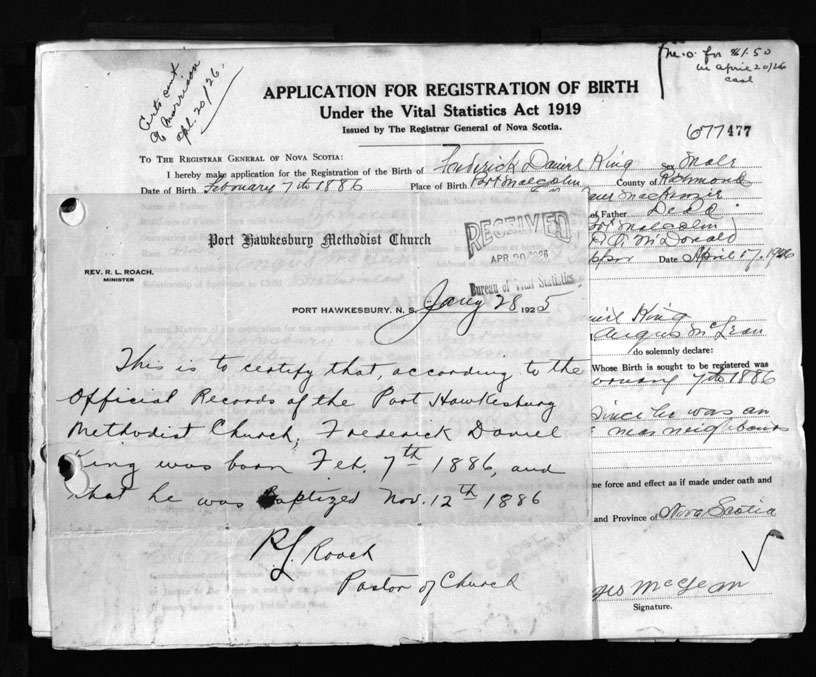 Certs ent
C. Morrison
Apl. 20/26.
m.o. for $1.50
in april 20/26
APPLICATION FOR REGISTRATION OF BIRTH
Under the Vital Statistics Act 1919
Issued by The Registrar General of Nova Scotia.
677477
TO THE REGISTRAR GENERAL OF NOVA SCOTIA:
I hereby make application for the Registration of the Birth of Frederick Daniel King Sex Male
Date of Birth February 7th 1886 Place of Birth Port Malcolm County of Richmond
MacKenzie
of Father Dead
Port Malcolm
McDonald
Date April 17, 1926
Port Hawkesbury Methodist Church
RECEIVED
APR 20 1926
Bureau of Vital Statistics
REV. R. L. ROACH,
MINISTER
PORT HAWKESBURY, N. S. Jany 28 1925
This is to certify that, according to the
Official Records of the Port Hawkesbury
Methodist Church, Frederick Daniel
King was born Feb. 7th 1886, and
that he was Baptized Nov. 12th 1886
R. L. Roach
Pastor of Church
King
Angus McLean
do solemnly declare:
Whose Birth is sought to be registered was
7th 1886
Since he was an
near neighbours
me force and effect as if made under oath and
and Province of Nova Scotia
Signature.